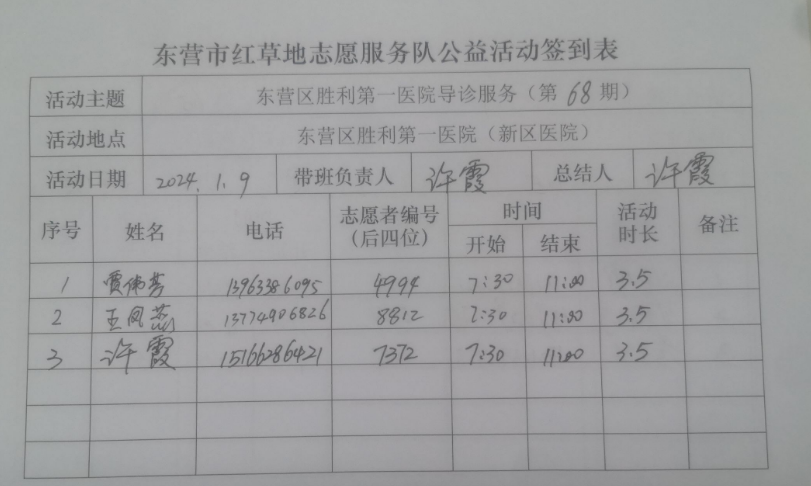 东营市红草地志愿服务队公益活动签到表
活动主题 东营区胜利第一医院导诊服务（第 68 期）
活动地点 东营区胜利第一医院（新区医院）
活动日期 2024.1.9 带班负责人 许霞 总结人 许霞
序号 姓名 电话 志愿者编号（后四位） 时间 开始 结束 活动时长 备注
1 贾伟芳 13963386095 4994 7:30 11:00 3.5
2 王凤 13774906826 8812 7:30 11:00 3.5
3 许霞 15166286421 7372 7:30 11:00 3.5